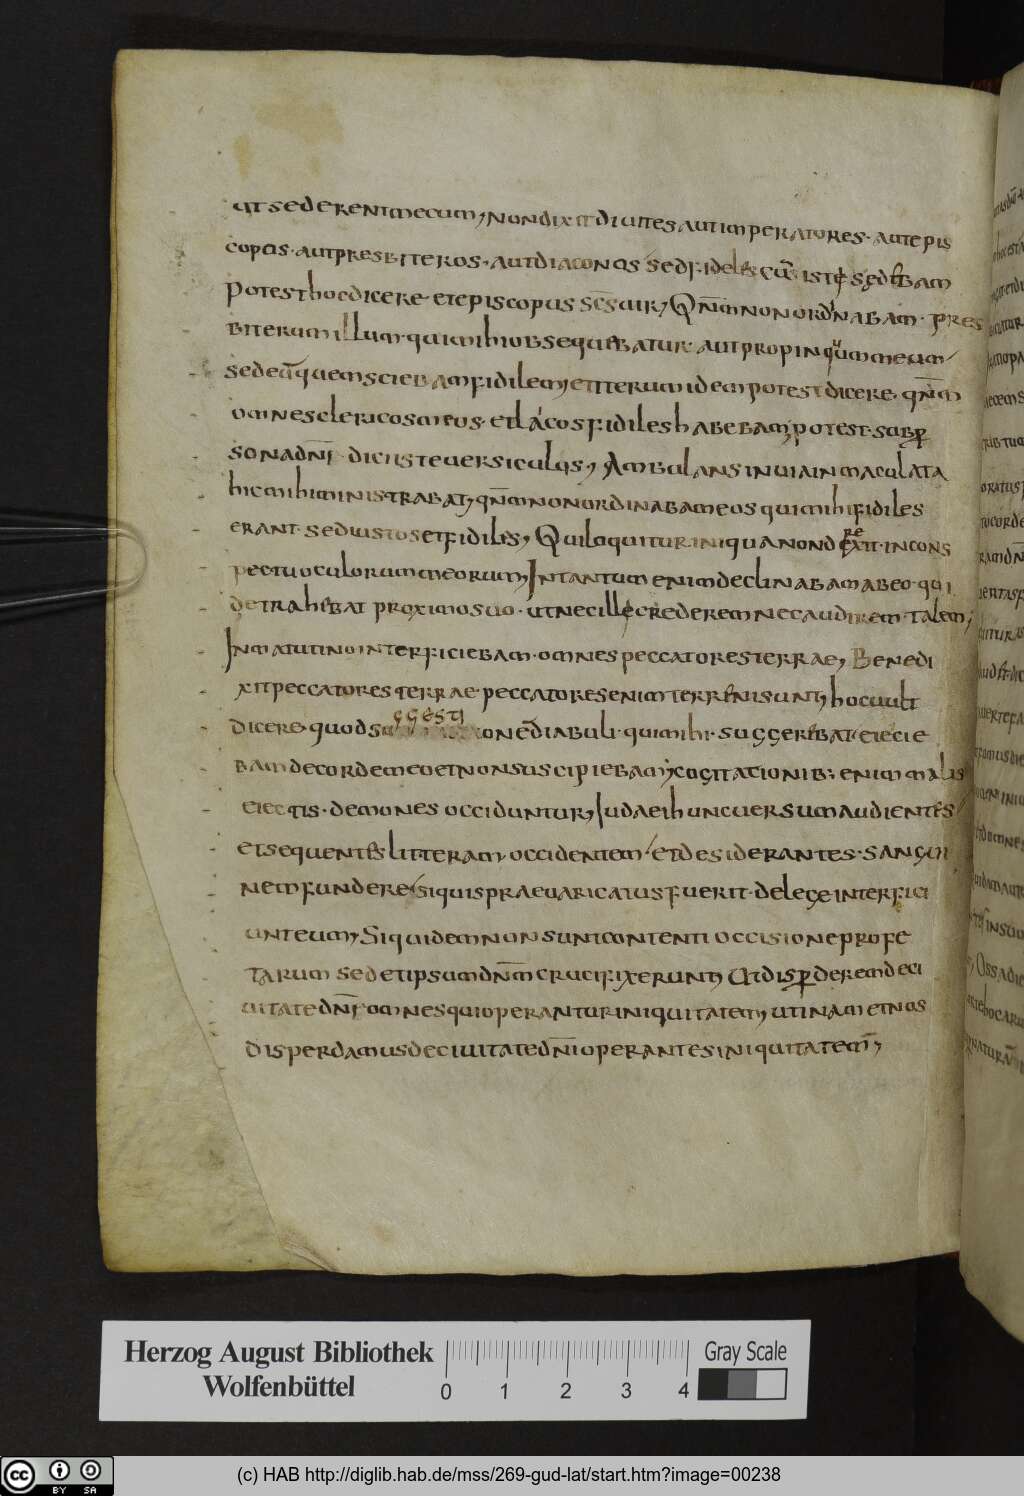 ut sederent mecum, non dixit diuites aut imperatores. aut epis
copos. aut presbiteros. aut diaconos sed fideles
potest hoc dicere et episcopus scs uir, Qnm non ordinabam. pres
biterum illum. qui mihi obsequebatur. aut propinquum meum
sed eu quem sciebam fidilem, et iterum idem potest dicere. qnm
omnes clericos meos. et laicos fidiles habebam, potest. sub per
sona dni dici iste uersiculus, Ambulans in uia inmaculata
hic mihi ministrabat, qnm non ordinabam eos qui mihi fidiles
erant. sed iustos et fidiles, Qui loquitur iniqua non direxit. in cons
pectu oculorum meorum, In tantum enim declinabam ab eo. qui
detrahebat proximo suo. ut nec ille crederem nec audirem talem,
In matutino interficiebam. omnes peccatores terrae, Benedi
xit peccatores terrae. peccatores enim terreni sunt, hoc uult
dicere. quod suggestione diabuli. qui mihi. suggerebat eiecie
bam de corde meo et non suscipiebam, cogitationib; enim malis
eiectis. demones occiduntur, Iudaei hunc uersum audientes
et sequentes litteram occidentem et desiderantes. sangui
nem fundere si quis praeuaricatus fuerit. de lege interfici
unt eum, Siquidem non sunt contenti occisione profe
tarum sed et ipsum dnm crucifixerunt, Ut disperderem de ci
uitate dni omnes qui operantur iniquitatem, utinam et nos
disperdamus de ciuitate dni operantes iniquitatem,
Herzog August Bibliothek
Wolfenbüttel
0 1 2 3 4
Gray Scale
cc BY SA
(c) HAB http://diglib.hab.de/mss/269-gud-lat/start.htm?image=00238